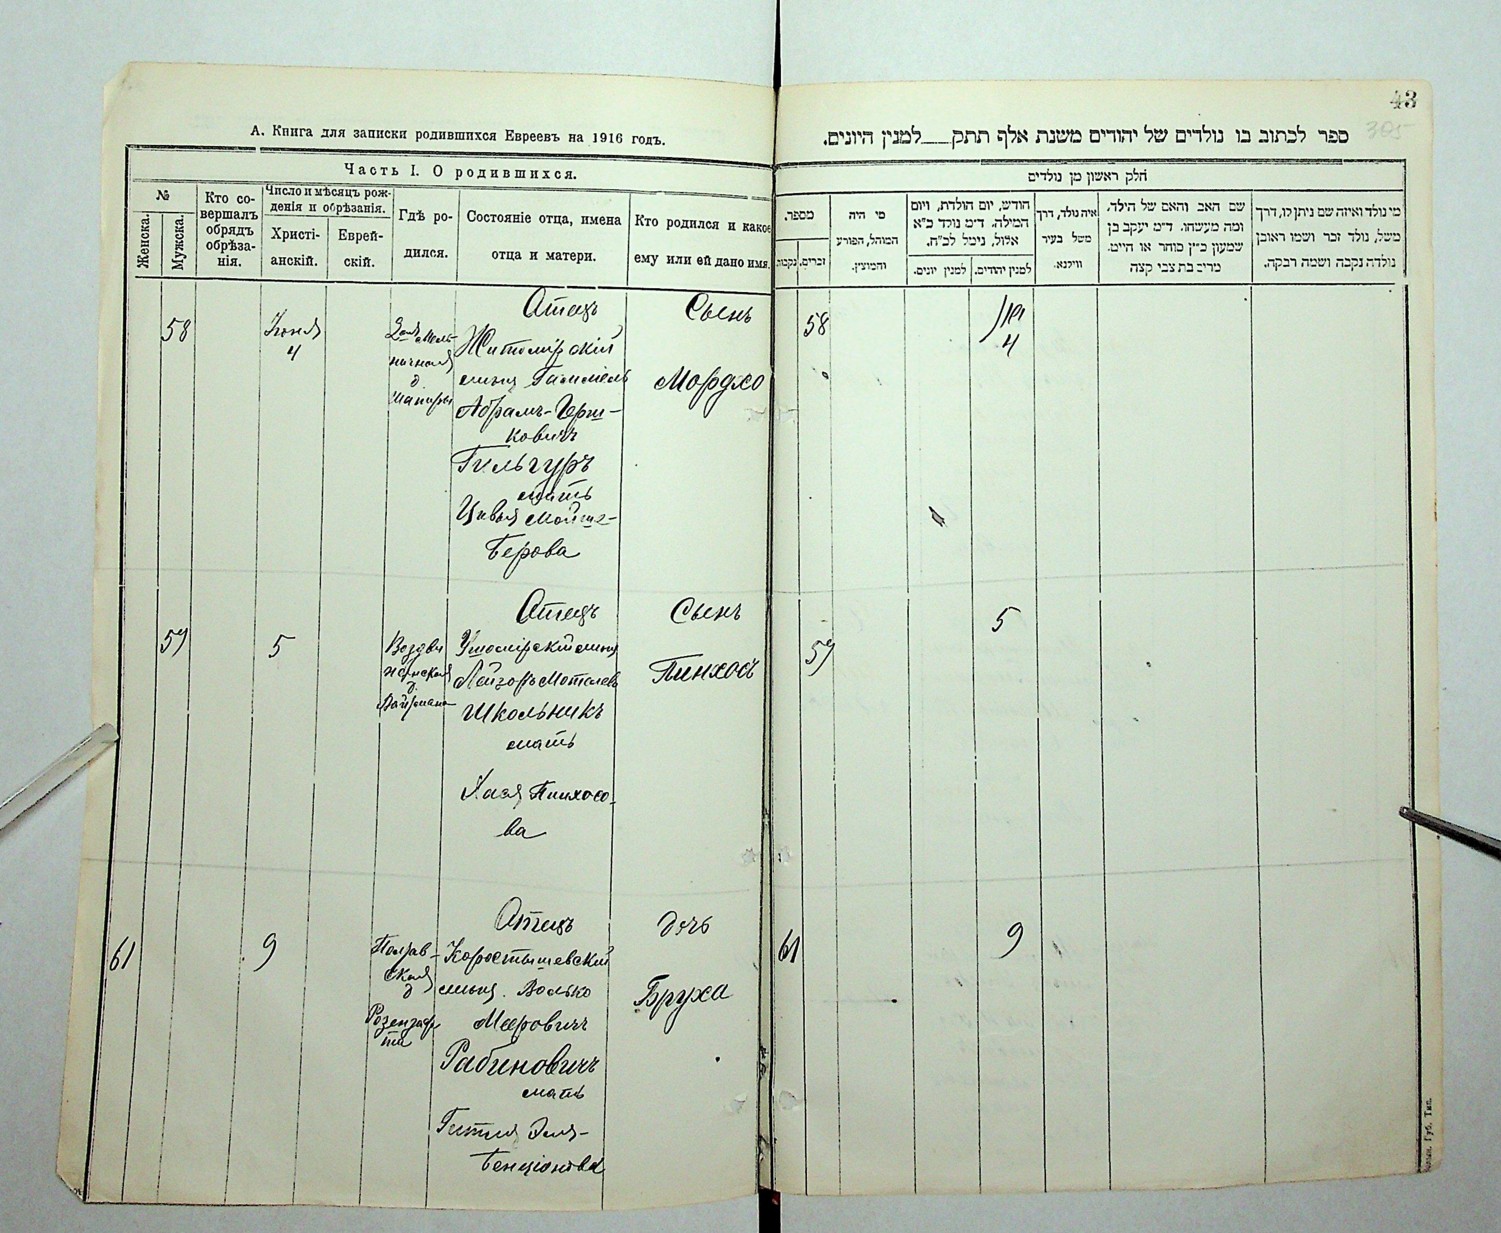 43
305
А. Книга для записки родившихся Евреевъ на 1916 годъ.
Часть I. О родившихся.
№
Женска.
Мужска.
Кто со-
вершалъ
обрядъ
обрѣза-
нія.
Число и мѣсяцъ рож-
денія и обрѣзанія.
Христі-
анскій.
Еврей-
скій.
Гдѣ ро-
дился.
Состояніе отца, имена
отца и матери.
Кто родился и какое
ему или ей дано имя.
58
Іюня
4
Отецъ
Житомірскій
Абрамъ-Герш-
ковичъ
мать
Цивья Мойше-
Берова
Сынъ
Мордхо
59
5
Отецъ
Лейзоръ
Школьникъ
мать
Хая Пинхосо-
ва
Сынъ
Пинхосъ
61
9
Полтав-
ская
д
Отецъ
Коростышевскій
Волько
Мееровичъ
Рабиновичъ
мать
Гитля
Бенціонова
дочь
Бруха
ספר לכתוב בו נולדים של יהודים משנת אלף תתק___למנין היונים.
חלק ראשון מן נולדים
מספר,
זכרים.
נקבות
מי היה
המוהל, הפורע
והמוצץ.
חודש, יום הולדת, ויום
המילה. ד״מ נולד כ״א
אלול, נימל לכ״ח.
למנין יונים.
למנין יהודים.
איה נולד, דרך
משל בעיר
ווילנא.
שם האב והאם של הילד,
ומה מעשהו. ד״מ יעקב בן
שמעון כ״ץ סוחר או חייט.
מרים בת צבי קצה
מי נולד ואיזה שם ניתן לו, דרך
משל, נולד זכר ושמו ראובן
נולדה נקבה ושמה רבקה.
58
4
59
5
61
9
Губ. Тип.